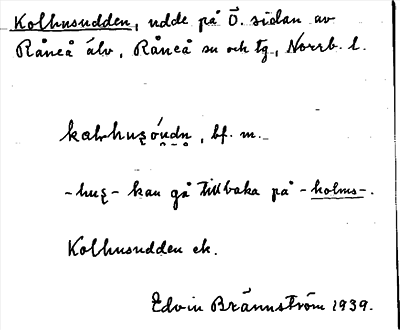 Kolhusudden, udde på Ö. sidan av
Råneå älv, Råneå sn och tg., Norrb. l.
bf. m.
-huş- kan gå tillbaka på -holms-.
Kolhusudden ek.
Edvin Brännström 1939.